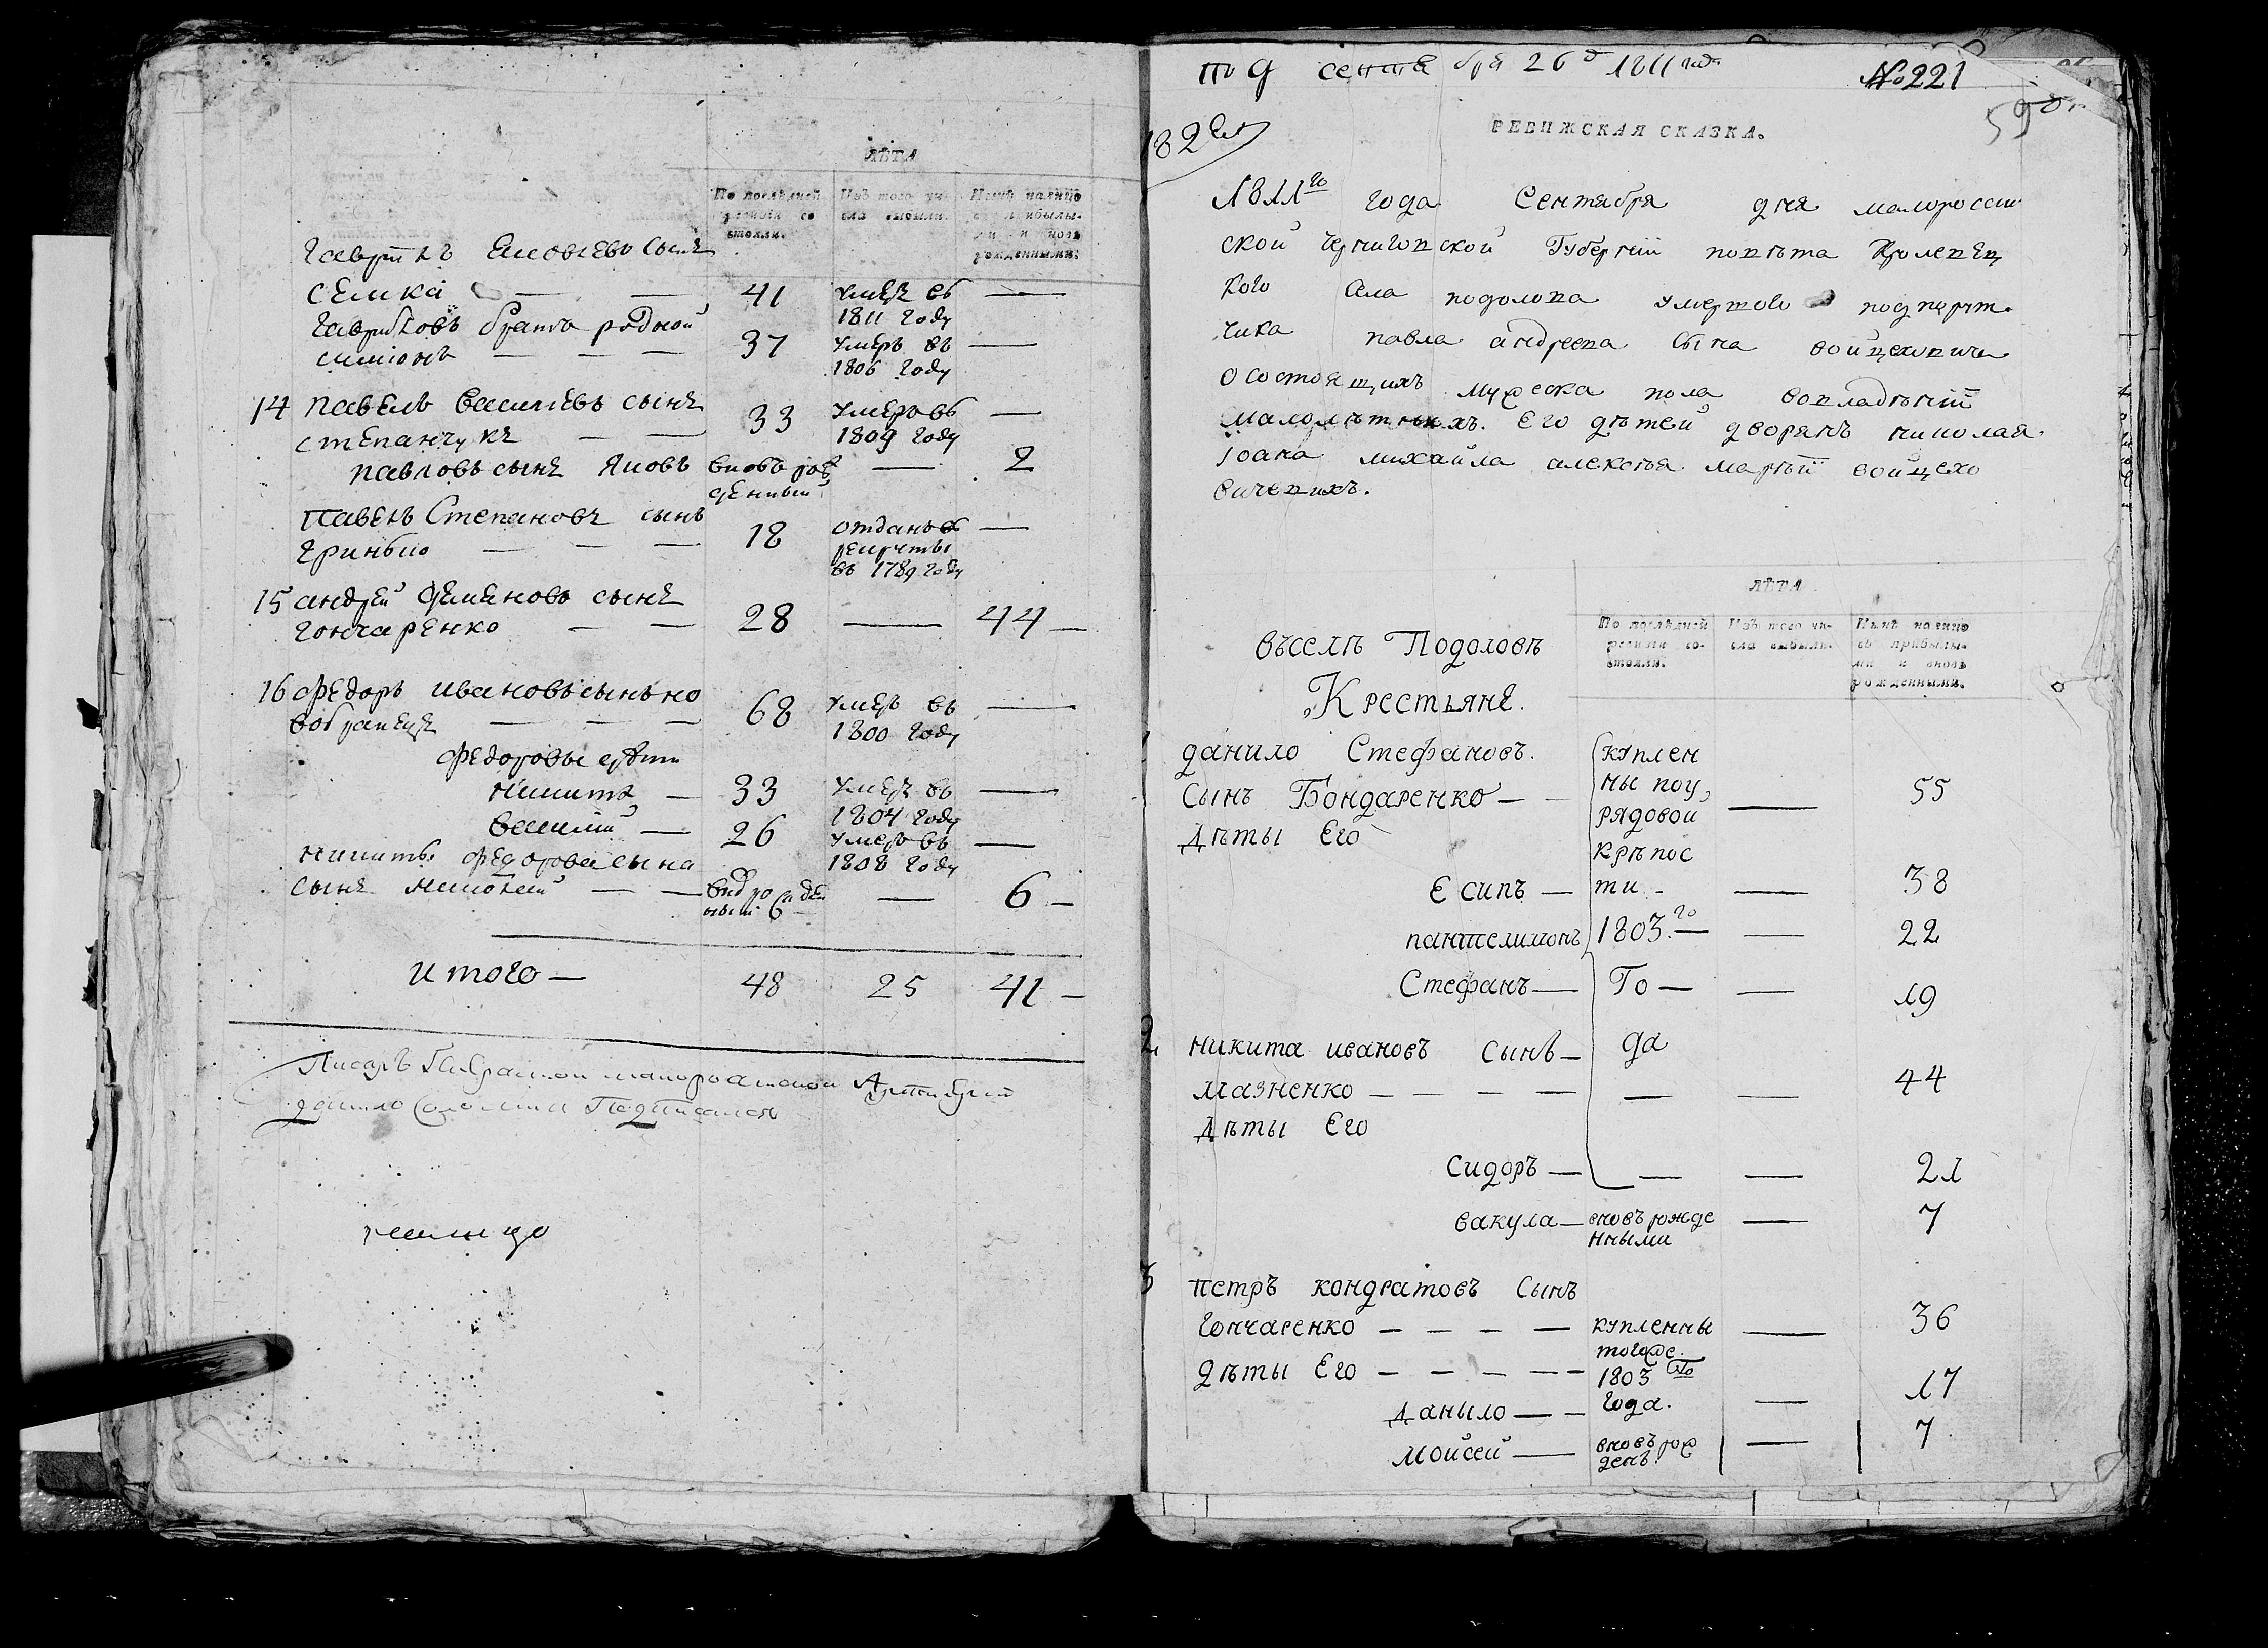 ЛѢТА
По послѣдней ревизіи состояли.
Изъ того числа выбыли.
Нынѣ налицо съ прибылыми и вновь рожденными.
сынъ
Семка — — 41 умеръ въ 1811 году —
братъ родной
симіонъ — — — 37 умеръ въ 1806 году —
14 павелъ василіевъ сынъ
степанчукъ — — 33 умеръ въ 1809 году —
павловъ сынъ яковъ вновь рожденный — 2
Павелъ Степановъ сынъ
— — — 18 отданъ въ рекруты въ 1789 году —
15 андрей деменовъ сынъ
гончаренко — — 28 — 44 —
16 федоръ ивановъ сынъ но
вобранецъ — — — 68 умеръ въ 1800 году —
федоровы дѣти
никита — 33 умеръ въ 1804 году —
василій — 26 умеръ въ 1808 году —
никиты федорова сына
сынъ — — — 6 —
итого — 48 25 41 —
Писаръ
Подписался
по д сентября 26 д 1811 года
№ 221
59
182
РЕВИЖСКАЯ СКАЗКА.
1811го года Сентября дня малороссий
ской черниговской Губерніи повѣта Кролевец
кого села подолова умершого подпорут
чика павла андреева сына войцеховича
о состоящихъ мужеска пола вовладѣніи
малолѣтныхъ его дѣтей дворянъ николая
іоана михайла алексѣя марѣи войцехо
вичевихъ.
ЛѢТА
По послѣдней ревизіи состояли.
Изъ того числа выбыли.
Нынѣ налицо съ прибылыми и вновь рожденными.
Въселѣ Подоловѣ
Крестьяне.
данило Стефановъ. куплен
Сынъ Бондаренко — — ны поу — 55
Дѣты Его рядовой
крѣпос
Есипъ — ти — — 38
пантелимонъ 1803.го — — 22
Стефанъ — Го — — 19
2 никита ивановъ Сынъ — да
мазненко — — — — — — 44
Дѣты Его
Сидоръ — — — 21
вакула — вновъ рожденными — 7
3 петръ кондратовъ Сынъ
Гончаренко — — — — купленны — 36
дѣты Его — — — — тогоже 1803го
Даныло — — года. — 17
Мойсей — вновъ рожденъ. — 7